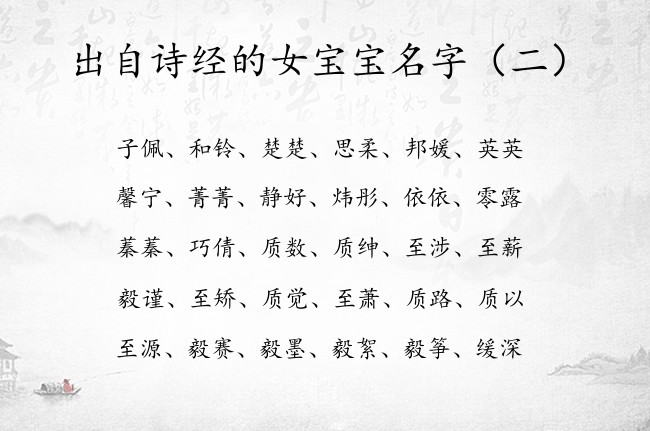 出自诗经的女宝宝名字（二）
子佩、和铃、楚楚、思柔、邦媛、英英
馨宁、菁菁、静好、炜彤、依依、零露
蓁蓁、巧倩、质数、质绅、至涉、至薪
毅谨、至矫、质觉、至萧、质路、质以
至源、毅赛、毅墨、毅絮、毅筝、缓深